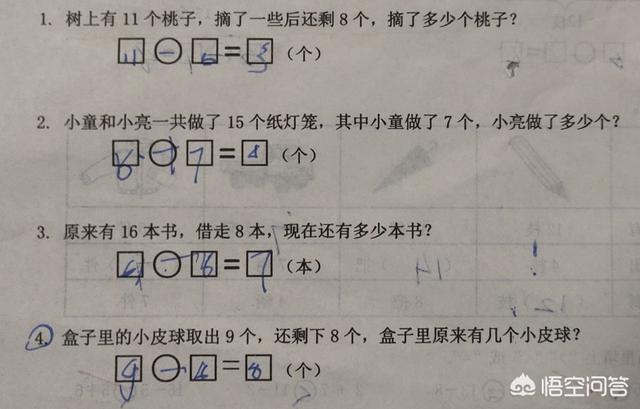 1. 树上有 11 个桃子，摘了一些后还剩 8 个，摘了多少个桃子？
11 - = 3 （个）
2. 小童和小亮一共做了 15 个纸灯笼，其中小童做了 7 个，小亮做了多少个？
7 = 8 （个）
3. 原来有 16 本书，借走 8 本，现在还有多少本书？
- = 7 （本）
4. 盒子里的小皮球取出 9 个，还剩下 8 个，盒子里原来有几个小皮球？
9 - = 8 （个）
悟空问答